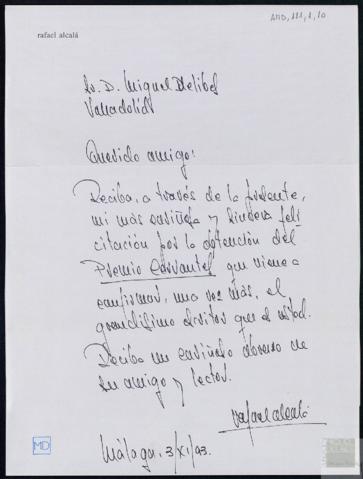 AMD, 111, 1, 10
rafael alcalá
Sr. D. Miguel Delibes
Valladolid
Querido amigo:
Reciba, a través de la presente,
mi más cariñosa y sincera feli
citación por la obtención del
Premio Cervantes que viene a
confirmar, una vez más, el
grandísimo escritor que es usted.
Reciba un cariñoso abrazo de
su amigo y lector.
rafael alcalá
Málaga, 3/XI/93.
MD